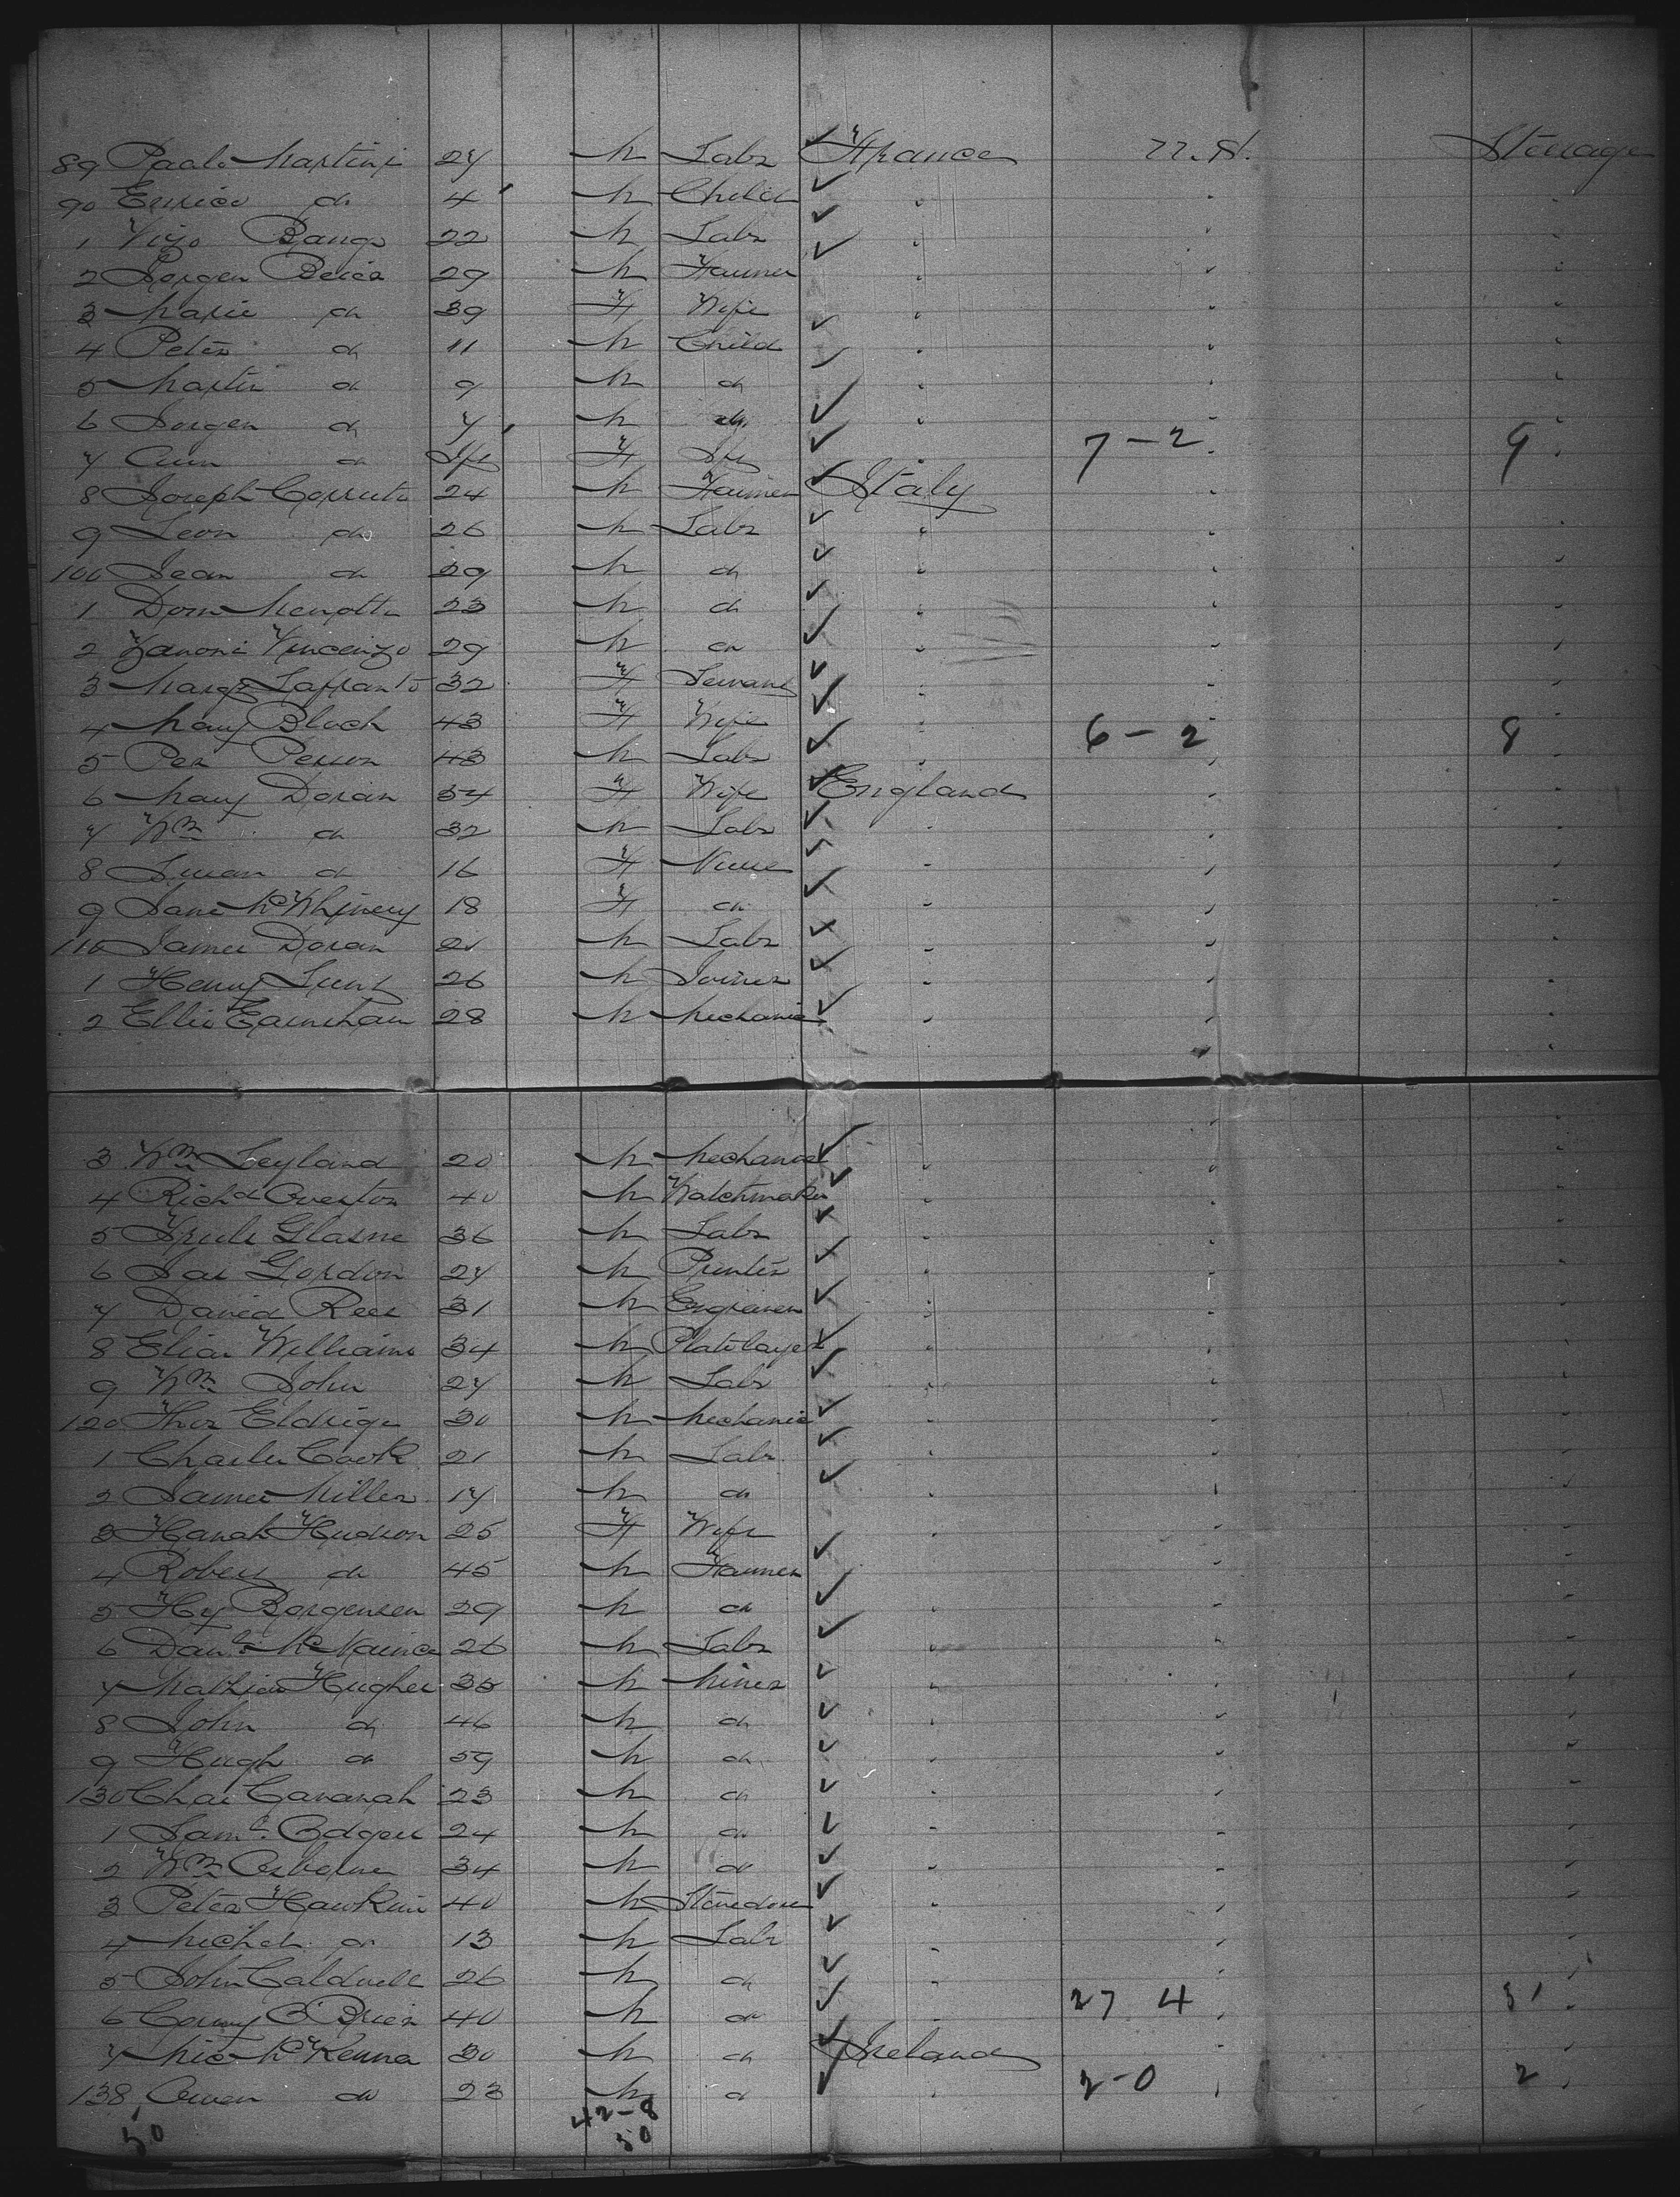 89 Paolo Martini 27 M Labr France U.S. Steerage
90 Enrico do 4 M Child " " "
1 Vizo Bango 22 M Labr " " "
2 Jorgen Beica 29 M Farmer " " "
3 Marie do 39 F Wife " " "
4 Peter do 11 M Child " " "
5 Martin do 9 M do " " "
6 Jorgen do 7 M do " " "
7 do F 7-2 " 9 "
8 Joseph 24 M Farmer Italy " "
9 Leon do 26 M Labr " " "
100 Jean do 29 M do " " "
1 Dom Menotti 23 M do " " "
2 Zanoni Vincenzo 29 M do " " "
3 Margt 32 F Servant " " "
4 Mary Bloch 43 F Wife " 6-2 " 8 "
5 Per Person 43 M Labr " " "
6 Mary Doran 54 F Wife England " "
7 Wm do 32 M Labr " " "
8 Susan do 16 F Nurse " " "
9 Jane McWhinery 18 F do " " "
110 James Doran 21 M Labr " " "
1 Henry Lunt 26 M Joiner " " "
2 Ellis Earnshaw 28 M Mechanic " " "
3 Wm Leyland 20 M Mechanic " " "
4 Richd Overton 40 M Watchmaker " " "
5 Glasne 36 M Labr " " "
6 Jas Gordon 27 M Printer " " "
7 David Rees 31 M Engraver " " "
8 Elias Williams 34 M Platelayer " " "
9 Wm John 27 M Labr " " "
120 Thos Eldrige 30 M Mechanic " " "
1 Charles Cook 21 M Labr " " "
2 James Miller 17 M do " " "
3 Hanah Hudson 25 F Wife " " "
4 Robert do 45 M Farmer " " "
5 Hy Borgensen 29 M do " " "
6 Danl 26 M Labr " " "
7 Mathew Hughes 35 M Miner " " "
8 John do 46 M do " " "
9 Hugh do 59 M do " " "
130 Chas Cavanah 23 M do " " "
1 Saml Edgell 24 M do " " "
2 Wm Osborne 34 M do " " "
3 Peter Hawkins 40 M Stevedore " " "
4 Michel do 13 M Labr " " "
5 John Caldwell 26 M do " " "
6 O'Brien 40 M do " 27 4 " 31 "
7 Mic McKenna 30 M do Ireland " "
138 Owen do 23 M do " 2-0 " 2 "
50 42-8
50